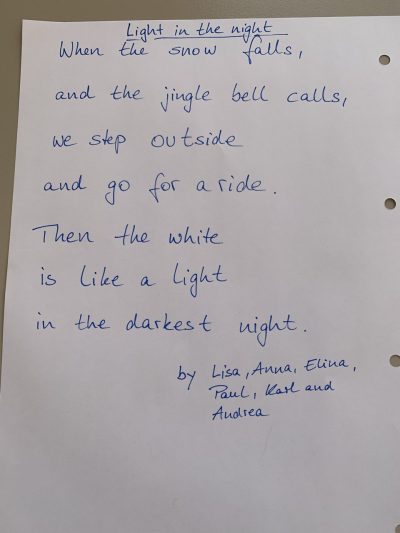 Light in the night
When the snow falls,
and the jingle bell calls,
we step outside
and go for a ride.
Then the white
is like a light
in the darkest night.
by Lisa, Anna, Elina,
Paul, Karl and
Andrea